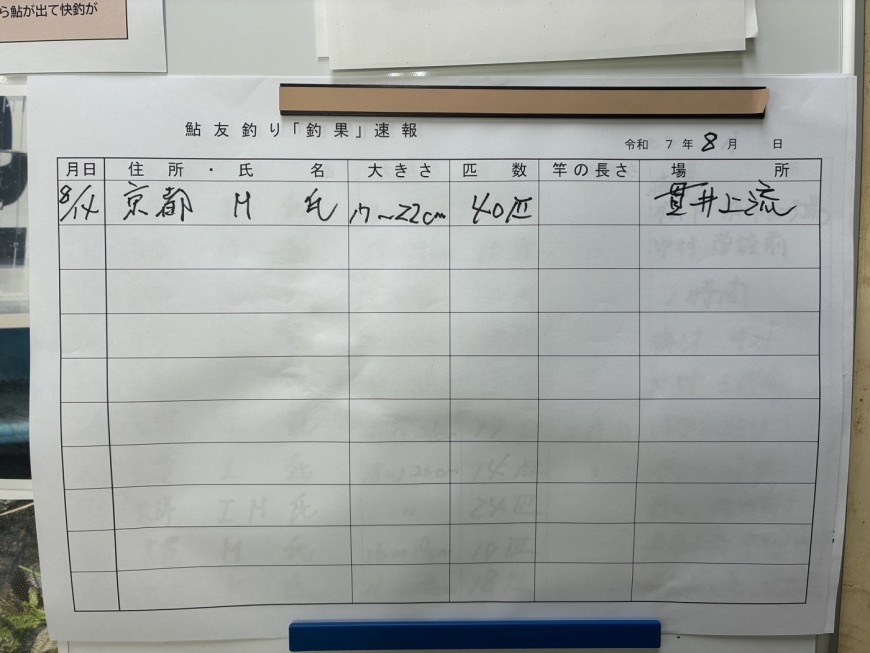 ら鮎が出て快釣が
鮎友釣り「釣果」速報
令和 7年 8月 日
月日 住所・氏名 大きさ 匹数 竿の長さ 場所
8/14 京都 M 氏 17~22cm 40匹 貫井上流